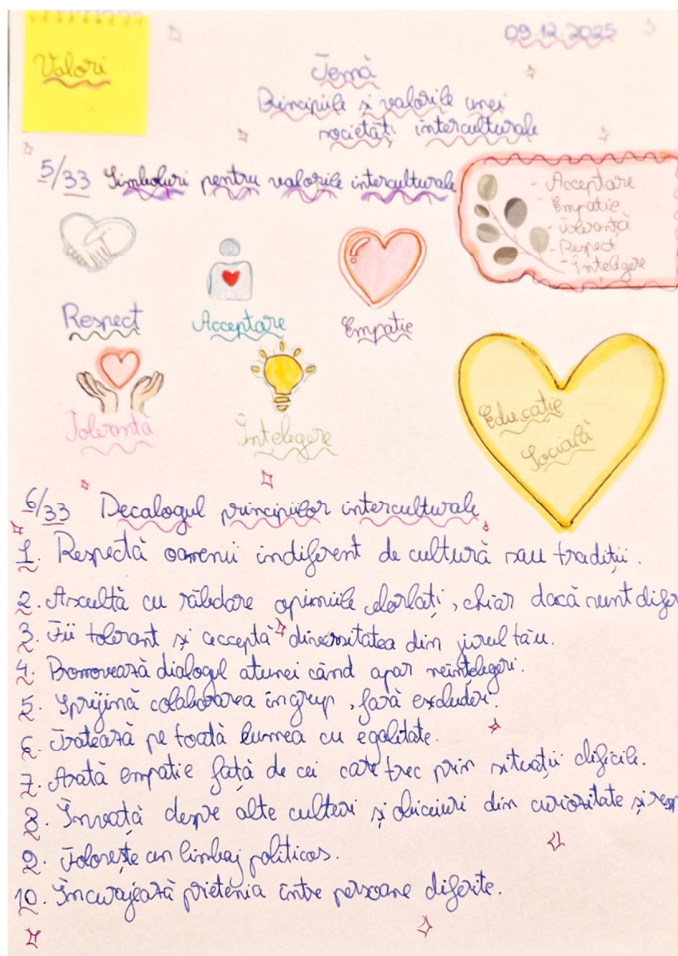 Valori
09.12.2025
Temă
Principiile și valorile unei
societăți interculturale
5/33 Simboluri pentru valorile interculturale
- Acceptare
- Empatie
- Toleranță
- Respect
- Înțelegere
Respect
Acceptare
Empatie
Toleranță
Întelegere
Educație
Socială
6/33 Decalogul principiilor interculturale
1. Respectă oamenii indiferent de cultură sau tradiții.
2. Ascultă cu răbdare opiniile celorlați, chiar dacă sunt difer
3. Fii tolerant și acceptă diversitatea din jurul tău.
4. Promovează dialogul atunci când apar neînțelegeri.
5. Sprijină colaborarea în grup, fără excluderi.
6. Tratează pe toată lumea cu egalitate.
7. Arată empatie față de cei care trec prin situații dificile.
8. Învață despre alte culturi și obiceiuri din curiozitate și resp
9. Folosește un limbaj politicos.
10. Încurajează prietenia între persoane diferite.